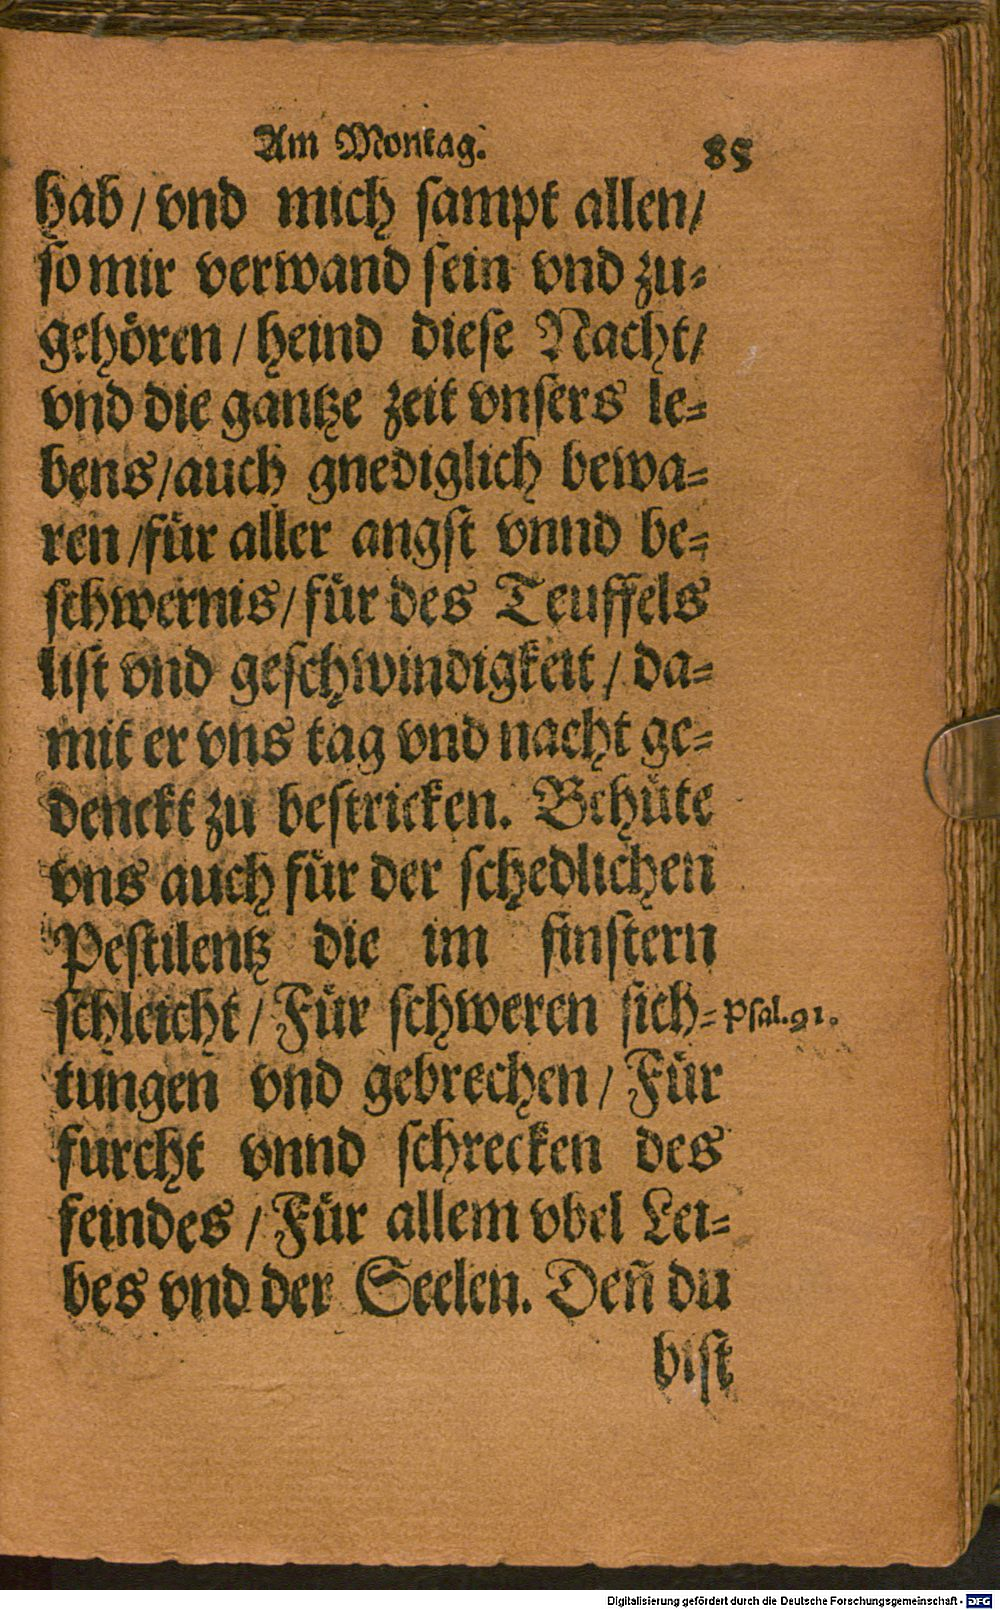 Am Montag. 85
hab/ vnd mich sampt allen/
so mir verwand sein vnd zu-
gehören/ heind diese Nacht/
vnd die gantze zeit vnsers le-
bens/ auch gnediglich bewa-
ren/ für aller angst vnnd be-
schwernis/ für des Teuffels
list vnd geschwindigkeit/ da-
mit er vns tag vnd nacht ge-
denckt zu bestricken. Behüte
vns auch für der schedlichen
Pestilentz die im finstern
schleicht/ Für schweren sich- Psal. 91.
tungen vnd gebrechen/ Für
furcht vnnd schrecken des
feindes/ Für allem vbel Lei-
bes vnd der Seelen. Deñ du
bist
Digitalisierung gefördert durch die Deutsche Forschungsgemeinschaft - DFG